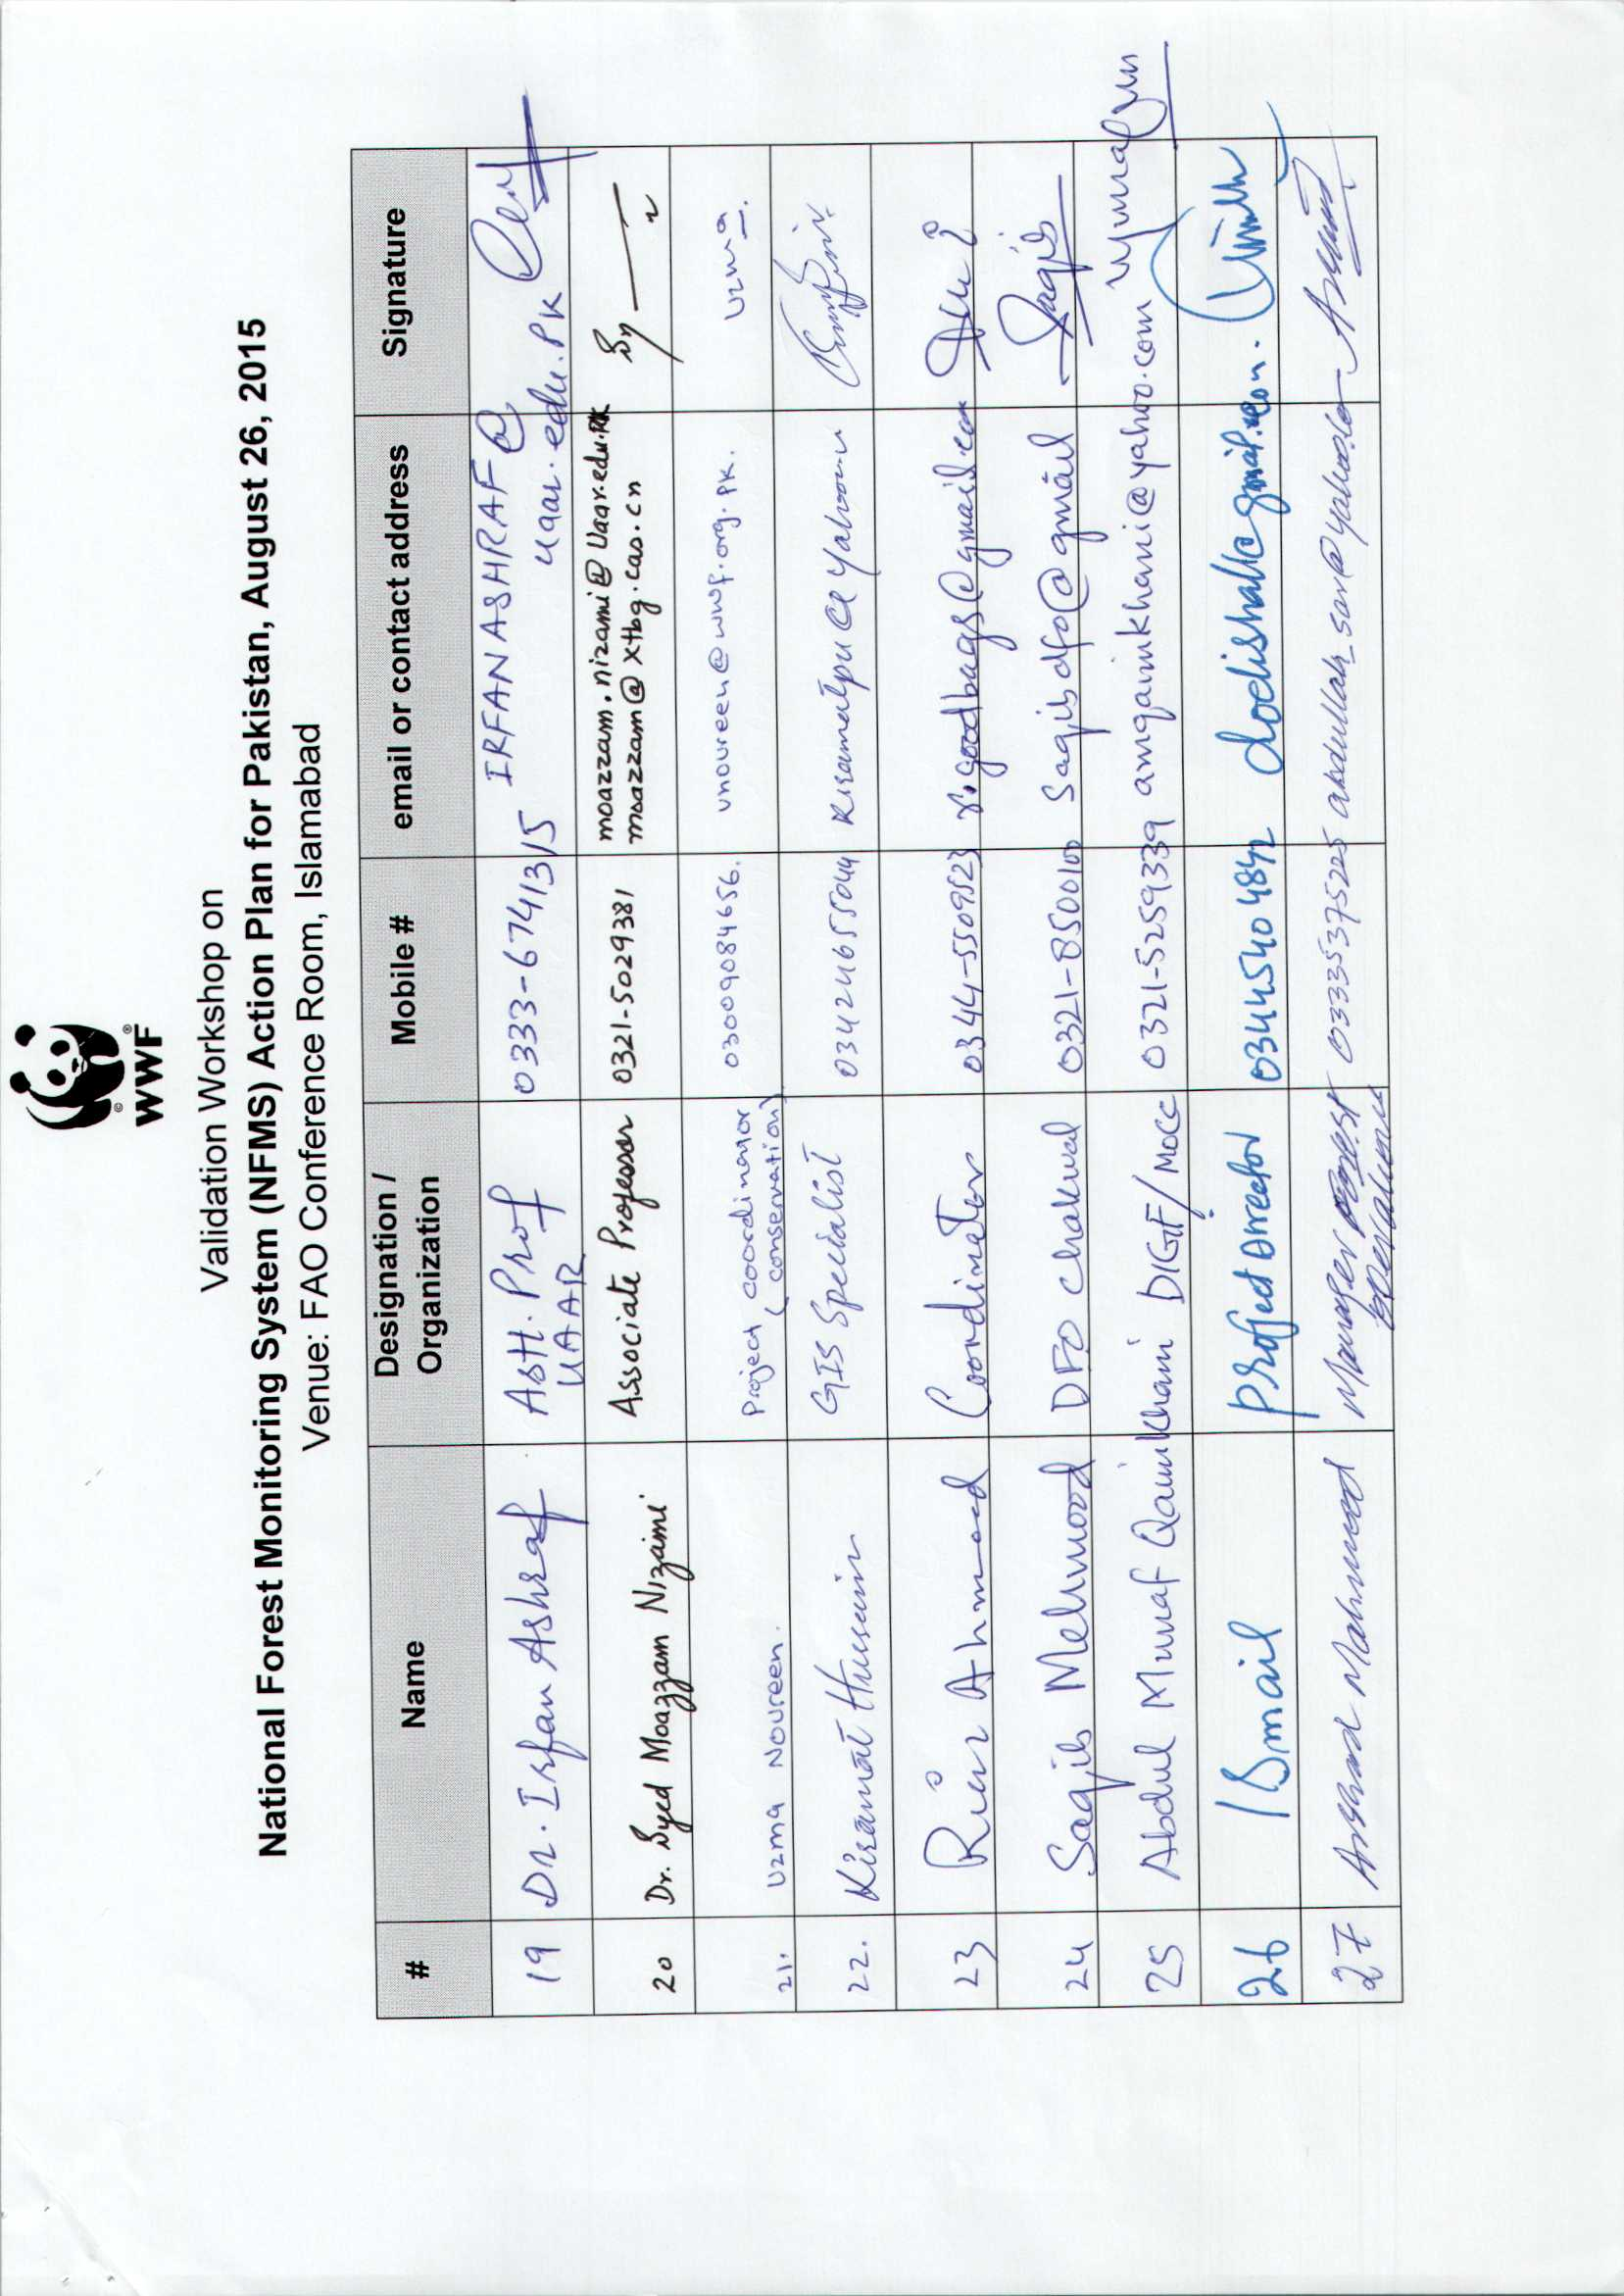 WWF
Validation Workshop on
National Forest Monitoring System (NFMS) Action Plan for Pakistan, August 26, 2015
Venue: FAO Conference Room, Islamabad
# Name Designation / Organization Mobile # email or contact address Signature
19 Dr. Irfan Ashraf Astt. Prof UAAR 0333-6741315 IRFANASHRAF@uaar.edu.PK
20 Dr. Syed Moazzam Nizami Associate Professor 0321-5029381 moazzam.nizami@uaar.edu.PK
moazzam@xtbg.cas.cn
21. Uzma Noureen. Project Coordinator (conservation) 03009084656. unoureen@wwf.org.PK. Uzma.
22. Kiramat Hussain GIS Specialist 03424655044
23 Ahmad Coordinator 0344-5509523 r.goodbags@gmail.com
24 Saqib Mehmood DFO Chakwal 0321-8500100 Saqibdfo@gmail Saqib
25 Abdul Munaf Qaimkhani DIGF/MoCC 0321-5259339 amqaimkhani@yahoo.com
26 Ismail Project Director 03445404842
27 Arshad Mahmood Manager 03335375225